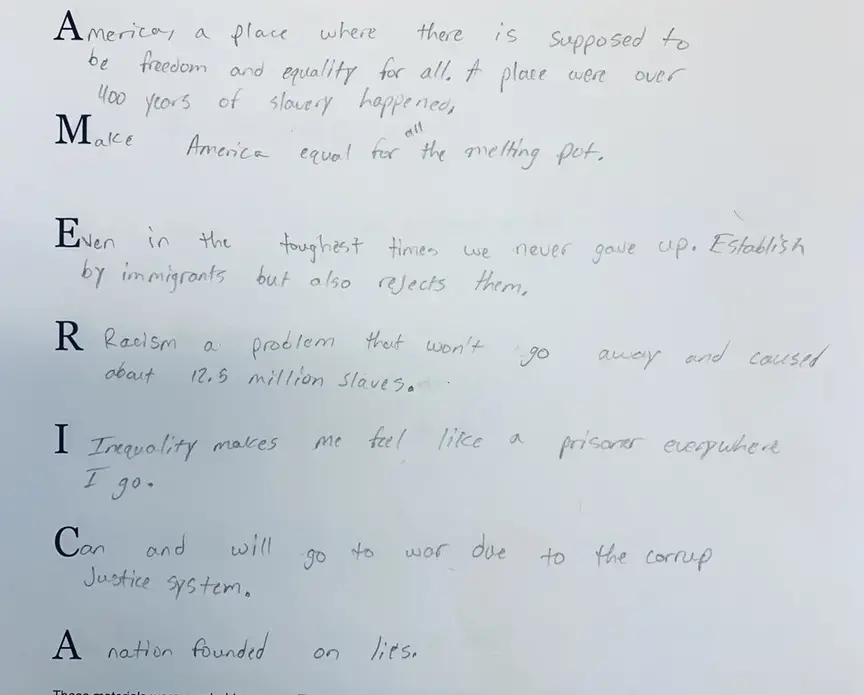 America, a place where there is supposed to
be freedom and equality for all. A place were over
400 years of slavery happened,
Make America equal for all the melting pot.
Even in the toughest times we never gave up. Establish
by immigrants but also rejects them.
R Racism a problem that won't go away and caused
about 12.5 million slaves.
I Inequality makes me feel like a prisoner everywhere
I go.
Can and will go to war due to the corrup
Justice system.
A nation founded on lies.